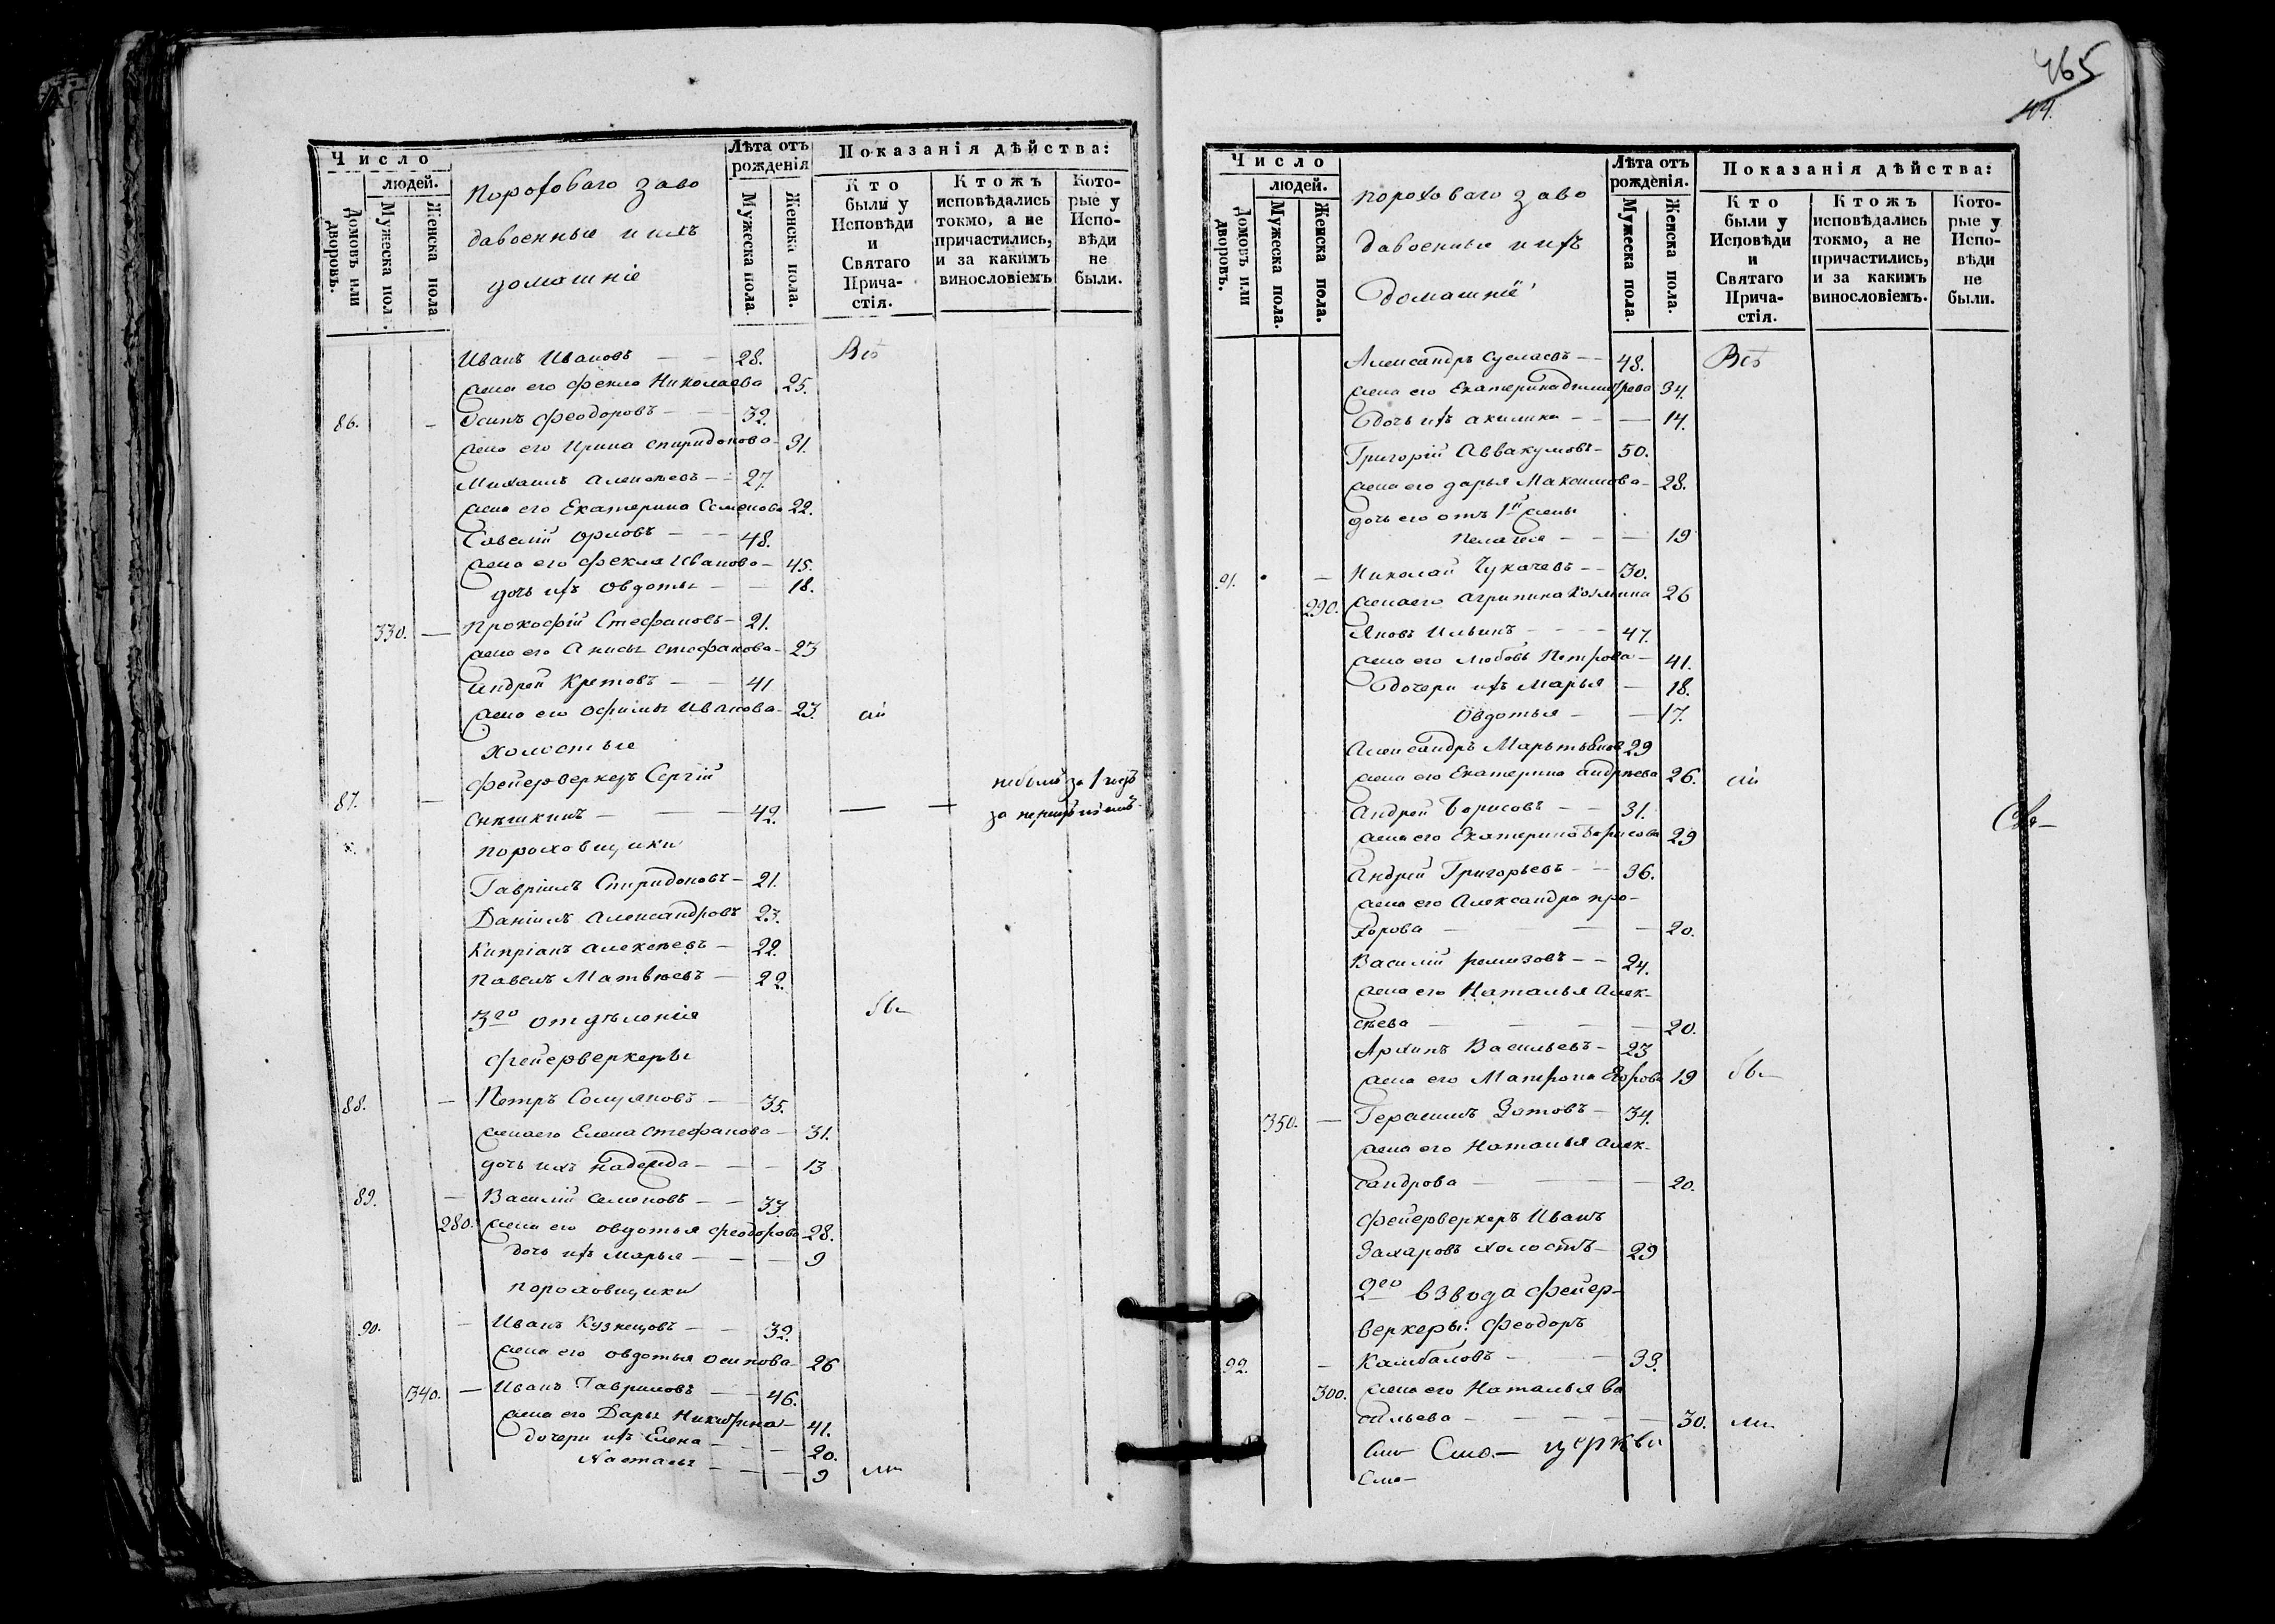 465
44.
Число
людей.
Домовъ или дворовъ.
Мужеска пол
Женска пола
Пороховаго заво
да военные и ихъ
домашніе
Лѣта отъ
рожденія
Мужеска пола
Женска пола.
Показанія дѣйства:
Кто
были у
Исповѣди
и
Святаго
Прича-
стія.
Ктожъ
исповѣдались
токмо, а не
причастились,
и за какимъ
винословіемъ
Кото-
рые у
Испо-
вѣди
не
были.
Иванъ Ивановъ — — 28. Всѣ
жена его Фекла Николаева 25.
86. — Осипъ Феодоровъ — — 32.
жена его Ирина Спиридонова 31.
Михаилъ Алексѣевъ — 27.
жена его Екатерина Семенова 22.
Савелій Орловъ — — 48.
жена его Фекла Иванова — 45.
дочь ихъ Овдотья — — 18.
330. — Прокофій Стефановъ — 21.
жена его Анисья Стефанова — 23
Андрей Кретовъ — — 41
жена его Офимья Иванова — 23.
холостые
Фейерверкеръ Сергій
небылъ за 1 годъ
87. — Снѣшкинъ — — — 42. — —
пороховщики
Гавріилъ Спиридоновъ — 21.
Даніилъ Александровъ 23.
Кипріанъ Алексѣевъ — 22.
Павелъ Матвѣевъ — 22.
3го отдѣленія
фейерверкеры
88. — Петръ Солуяновъ — 35.
жена его Елена Стефанова — 31.
дочь ихъ Надежда — — — 13
89. — Василій Семеновъ — — 33.
280. жена его Овдотья Феодорова 28.
дочь ихъ Марья — — — 9
пороховщики
90. — Иванъ Кузнецовъ — — 32.
жена его Овдотья Осипова — 26
340. — Иванъ Гавриловъ — — 46.
жена его Дарья Никитина — 41.
дочери ихъ Елена — — — 20.
Настасья — — — 9
Число
людей.
Домовъ или дворовъ.
Мужеска пола.
Женска пола.
Пороховаго заво
да военные и ихъ
домашніе
Лѣта отъ
рожденія.
Мужеска пола.
Женска пола.
Показанія дѣйства:
Кто
были у
Исповѣди
и
Святаго
Прича-
стія.
Ктожъ
исповѣдались
токмо, а не
причастились,
и за какимъ
винословіемъ.
Кото-
рые у
Испо-
вѣди
не
были.
Александръ Суслаевъ — — 48. Всѣ
жена его Екатерина Димитрева 34.
дочь ихъ Акилина — — — 14.
Григорій Аввакумовъ — 50.
жена его Дарья Максимова — 28.
дочь его отъ 1й жены
Пелагея — — — 19
91. — Николай Чукачевъ — — 30.
290. жена его Агрипина Козмина 26
Яковъ Ильинъ — — — 47.
жена его Любовь Петрова — 41.
дочери ихъ Марья — 18.
Овдотья — — 17.
Александръ Мартьяновъ 29
жена его Екатерина Андреева 26.
Андрей Борисовъ — — 31.
жена его Екатерина Борисова 29
Андрей Григорьевъ — — 36.
жена его Александра Про-
хорова — — — 20.
Василій Ремизовъ — — 24.
жена его Наталья Алек-
сѣева — — — — 20.
Архипъ Васильевъ — 23
жена его Матрона Егорова 19
350. — Герасимъ Зотовъ — 34.
жена его Наталья Алек-
сандрова — — — 20.
Фейерверкеръ Иванъ
Захаровъ холостъ — 29
2го взвода фейер-
веркеры: Феодоръ
92. — Камбаловъ — — 33.
300. жена его Наталья Ва
сильева — — — — 30.
церкви